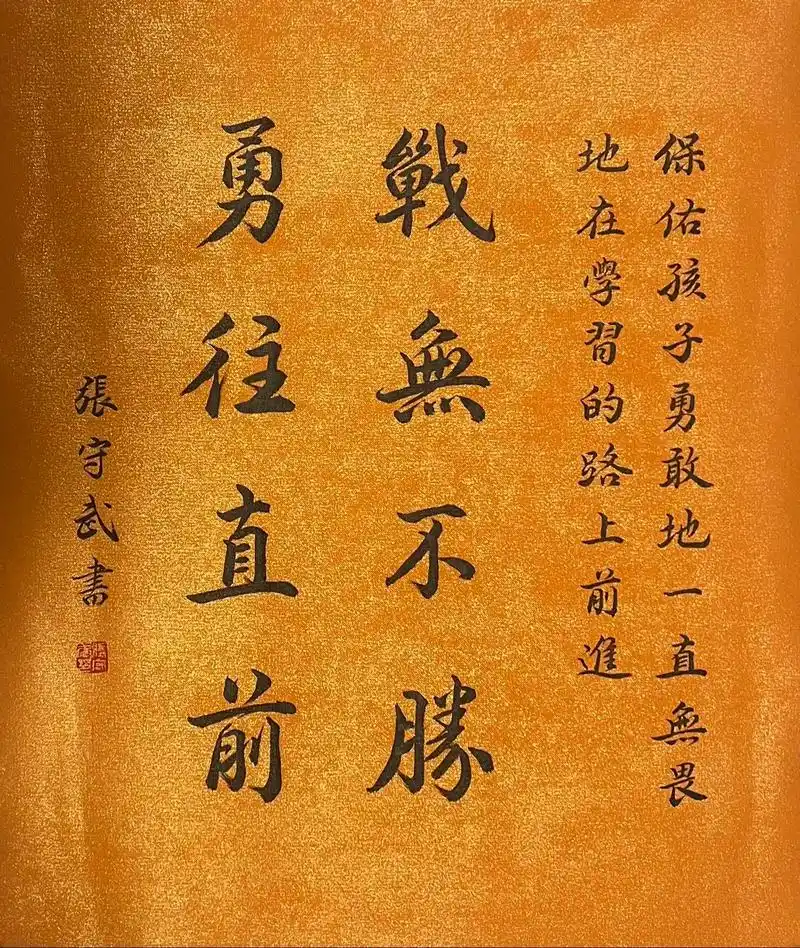 保佑孩子勇敢地一直無畏
地在學習的路上前進
戰無不勝
勇往直前
張守武書